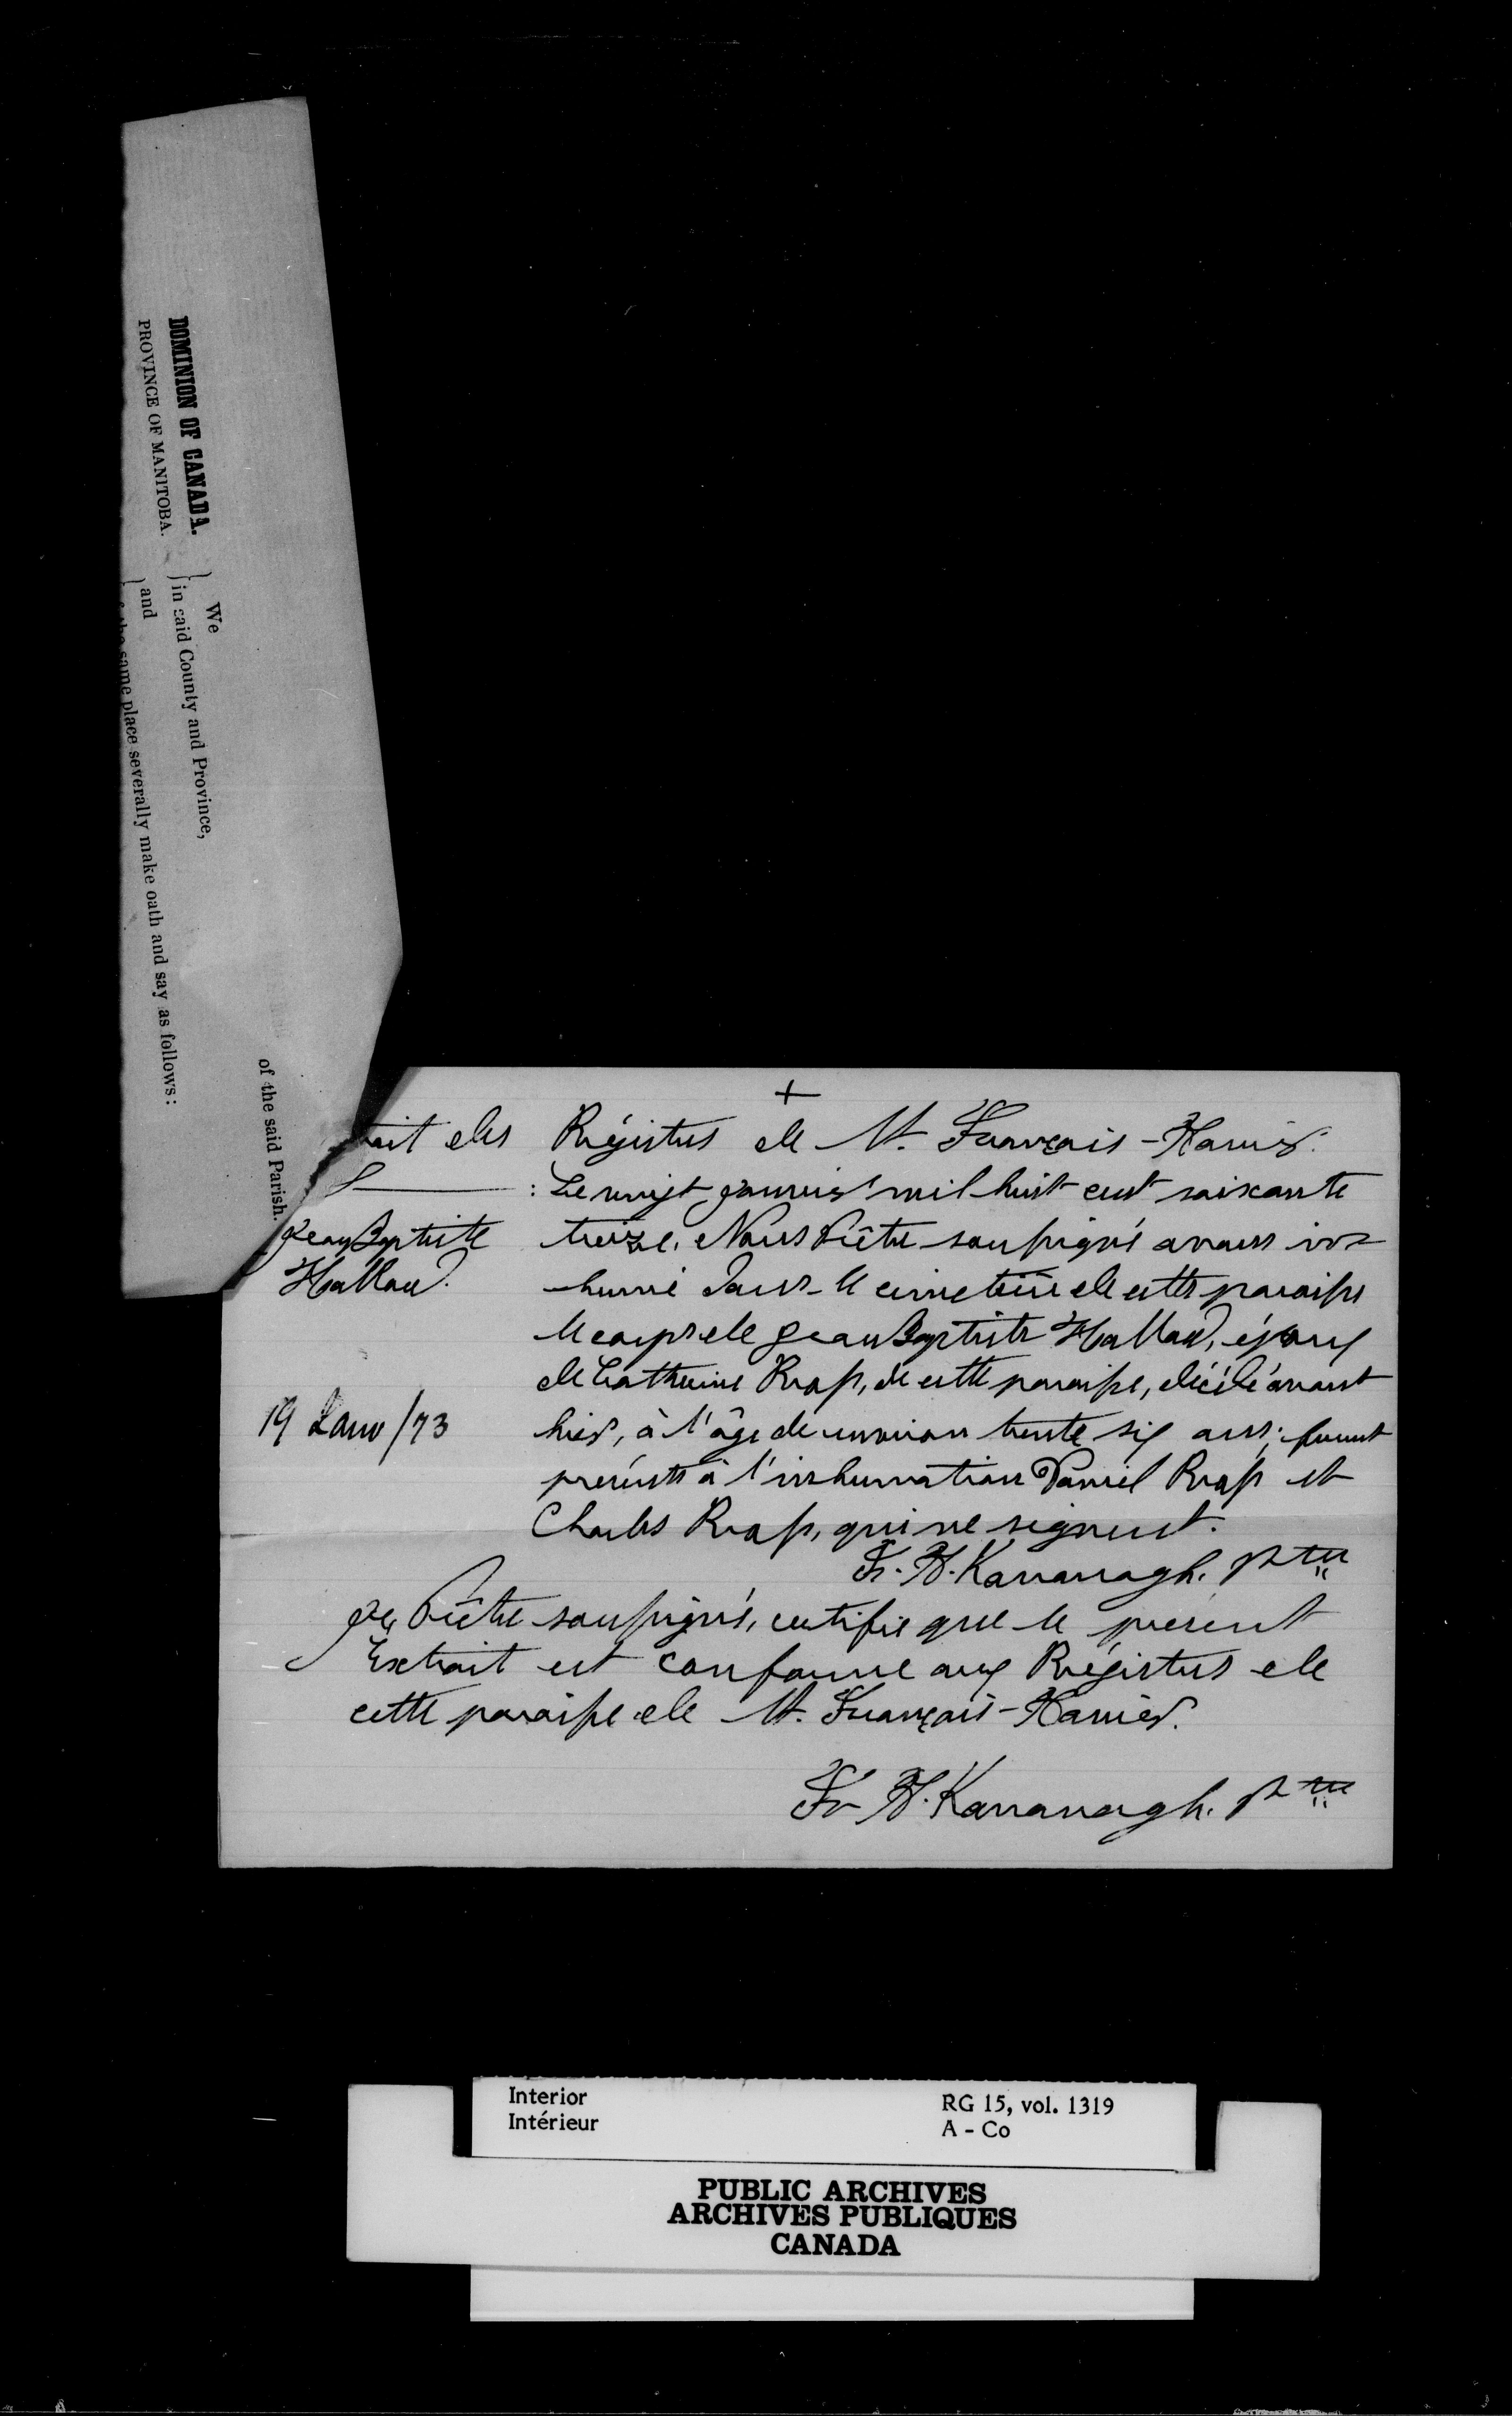 DOMINION OF CANADA.
PROVINCE OF MANITOBA.
We
in said County and Province,
and
the same place severally make oath and say as follows:
of the said Parish.
+
trait des Régistres de St. François-Xavier.
S : Le vingt janvier mil huit cent soixante
Jean Baptiste treize, Nous Prêtre soussigné avons in-
Hallau humé dans le cimetière de cette paroisse
le corps de Jean Baptiste Hallau, époux
de Catherine Ross, de cette paroisse, décédé avant
19 Janv/73 hier, à l'âge de environ trente six ans; furent
présents à l'inhumation Daniel Ross et
Charles Ross, qui ne signent.
Fr. X. Kavanagh. Ptre
Je, Prêtre soussigné, certifie que le présent
Extrait est conforme aux Régistres de
cette paroisse de St. François-Xavier.
Fr X. Kavanagh. Ptre
Interior RG 15, vol. 1319
Intérieur A - Co
PUBLIC ARCHIVES
ARCHIVES PUBLIQUES
CANADA